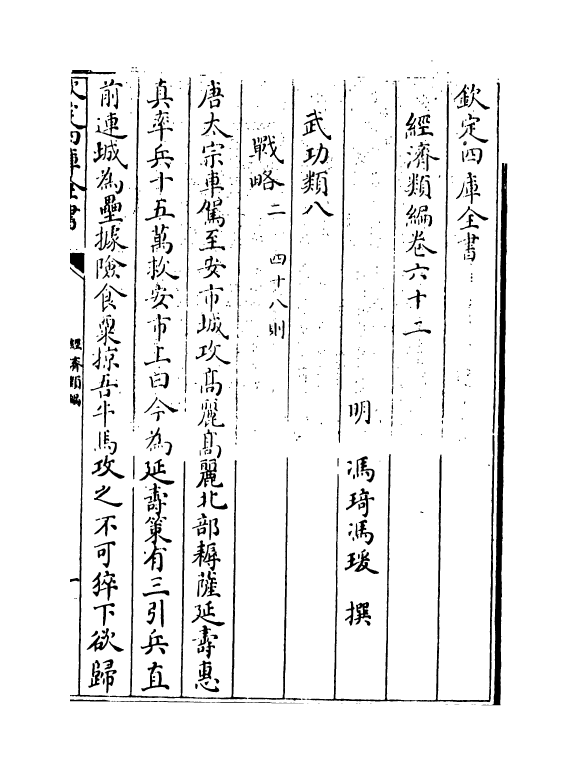 欽定四庫全書
經濟類編卷六十二
明 馮琦馮瑗 撰
武功類八
戰略二 四十八則
唐太宗車駕至安市城攻髙麗髙麗北部耨薩延壽惠
真率兵十五萬救安市上曰今為延壽策有三引兵直
前連城為壘據險食粟掠吾牛馬攻之不可猝下欲歸
欽定四庫全書
經濟類編
一